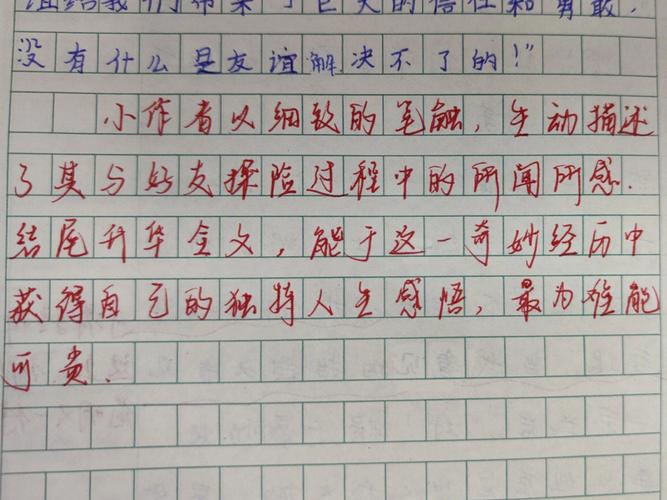 谊给我们带来了巨大的信任和勇敢，
没有什么是友谊解决不了的！”
小作者以细致的笔触，生动描述
了其与好友探险过程中的所闻所感.
结尾升华全文，能于这一奇妙经历中
获得自己的独特人生感悟，最为难能
可贵.